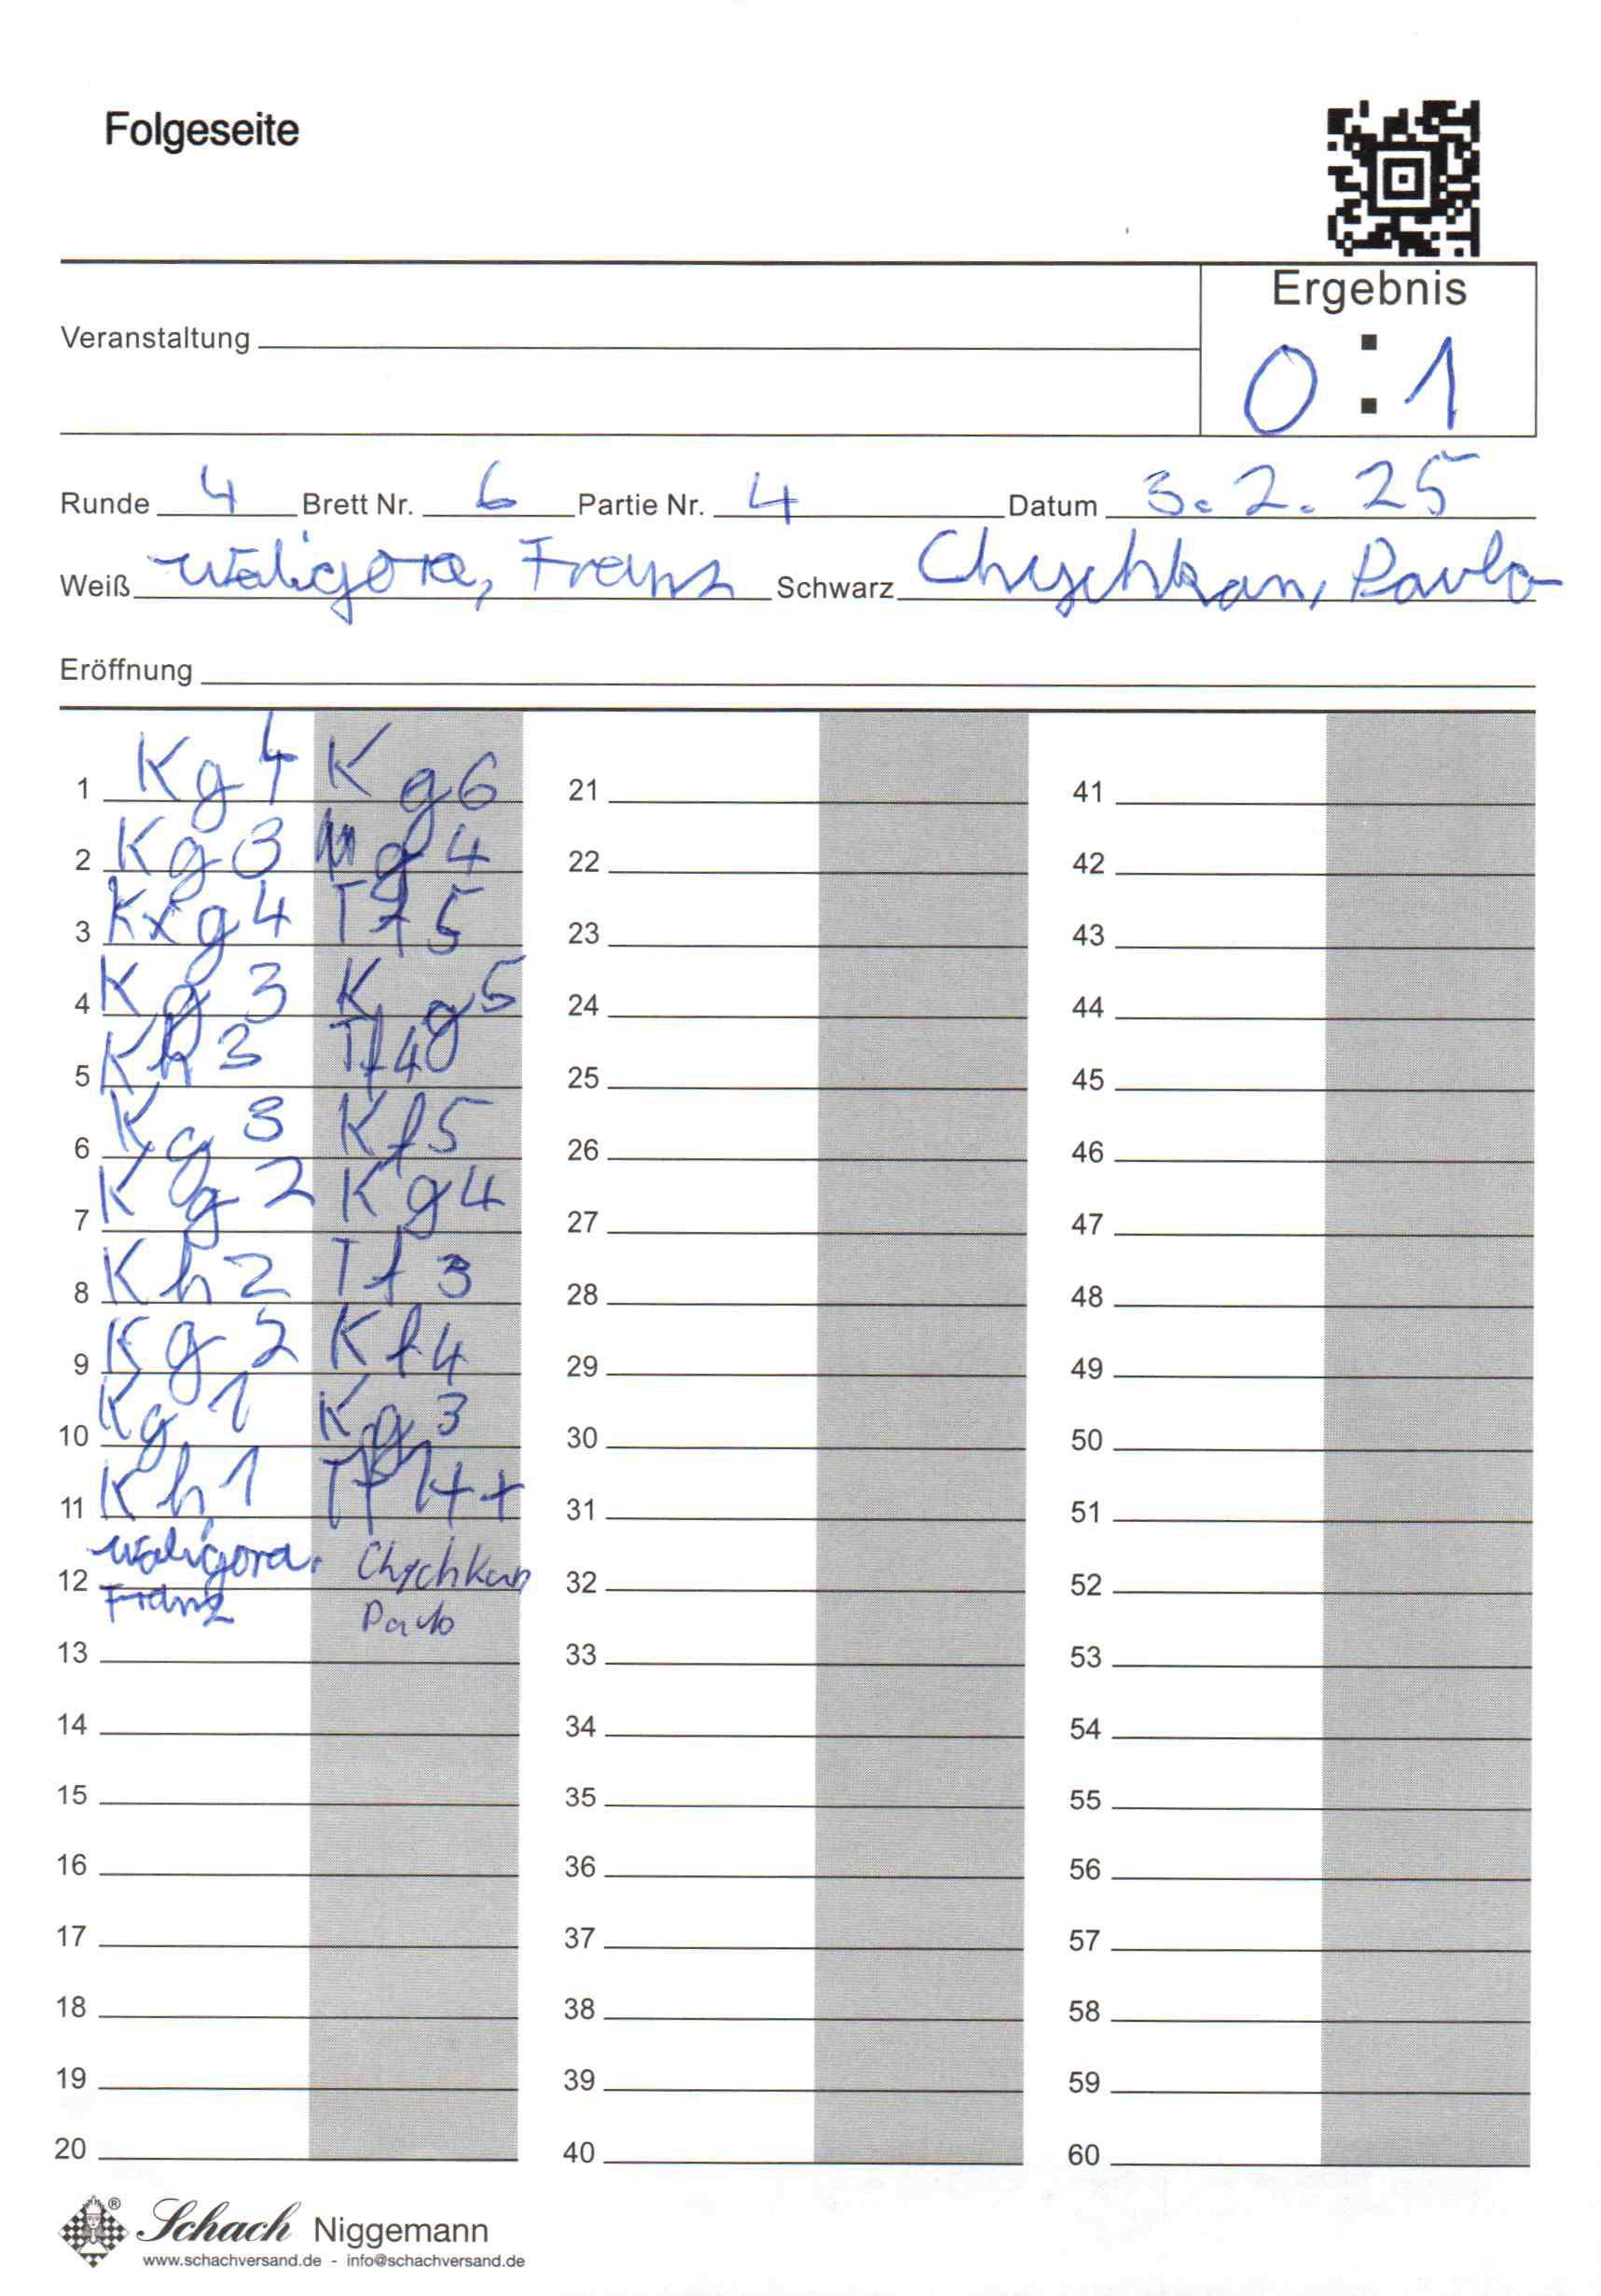 Folgeseite
Ergebnis
0 : 1
Veranstaltung
Runde 4 Brett Nr. 6 Partie Nr. 4 Datum 3. 2. 25
Weiß Waligora, Franz Schwarz Chychkan, Pavlo
Eröffnung
1 Kg4 Kg6
2 Kg3 g4
3 Kxg4 Tf5
4 Kg3 Kg5
5 Kh3 Tf4
6 Kg3 Kf5
7 Kg2 Kg4
8 Kh2 Tf3
9 Kg2 Kf4
10 Kg1 Kg3
11 Kh1 Tf1++
12 Waligora, Franz Chychkan Pavlo
13
14
15
16
17
18
19
20
21
22
23
24
25
26
27
28
29
30
31
32
33
34
35
36
37
38
39
40
41
42
43
44
45
46
47
48
49
50
51
52
53
54
55
56
57
58
59
60
® Schach Niggemann
www.schachversand.de - info@schachversand.de